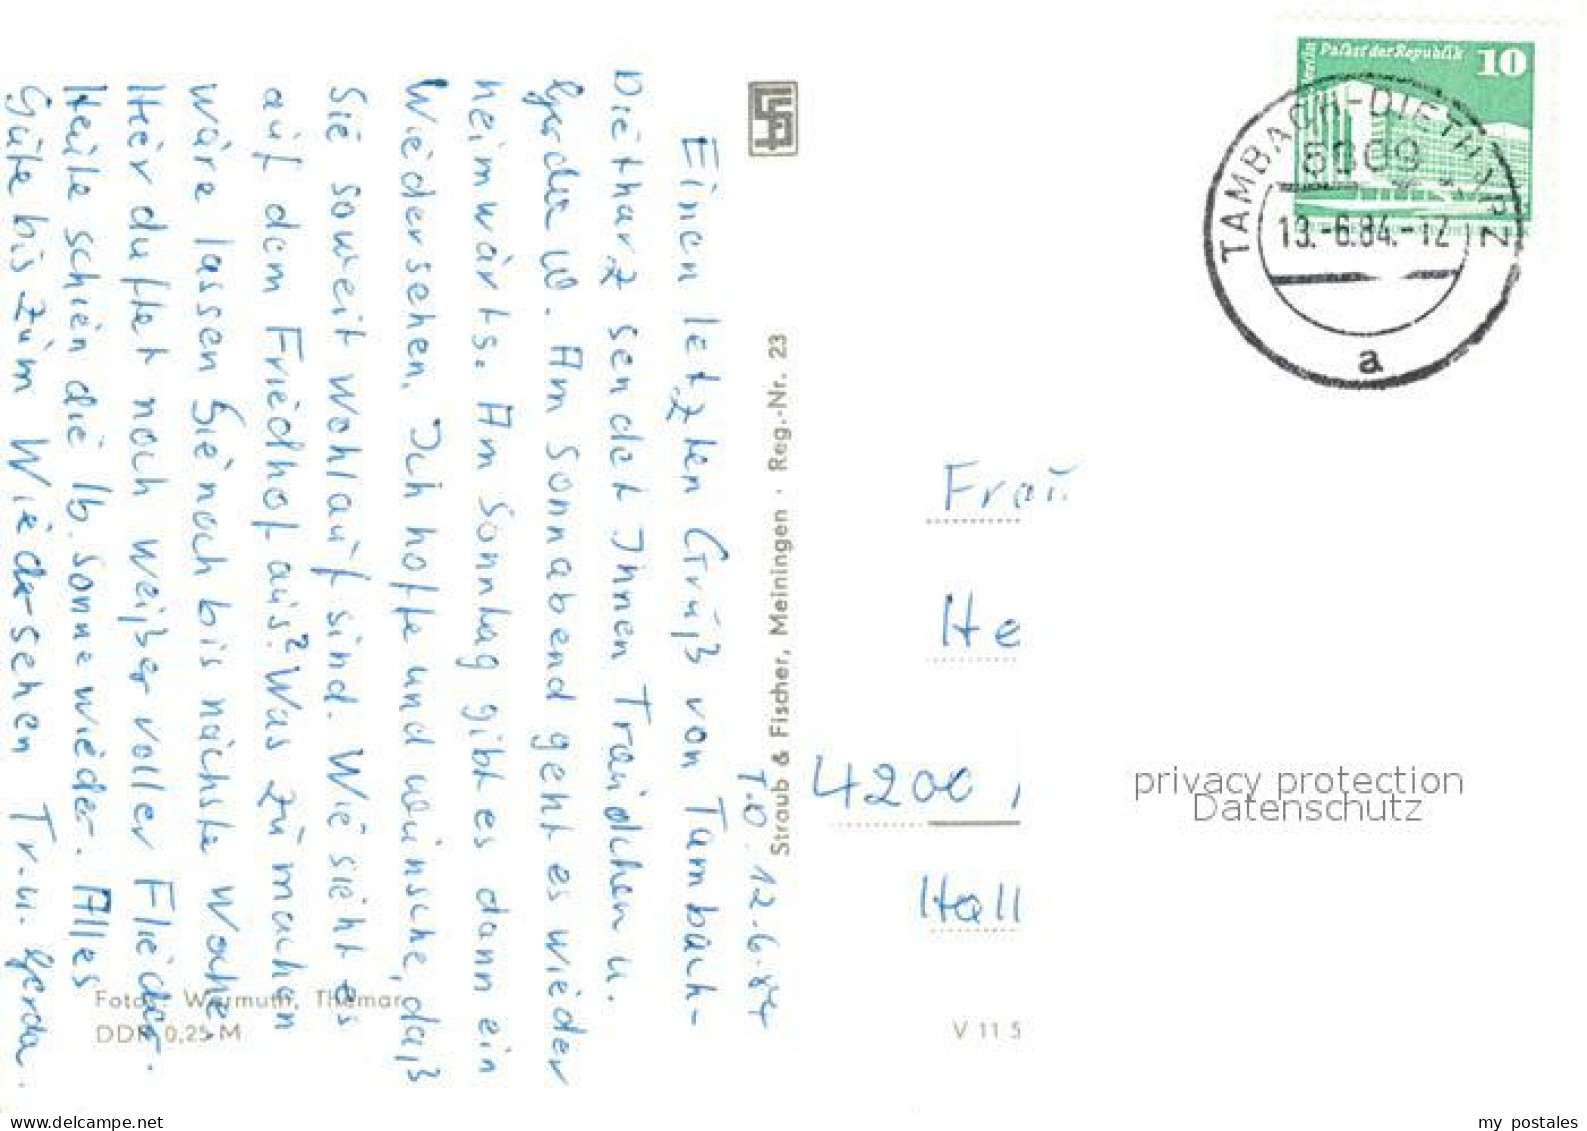 T-D. 12.6.84
Einen letzten Gruß von Tambach-
Dietharz sendet Ihnen Traudchen u.
Gerda W. Am Sonnabend geht es wieder
heimwärts. Am Sonntag gibt es dann ein
Wiedersehen. Ich hoffe und wünsche, daß
Sie soweit wohlauf sind. Wie sieht es
auf dem Friedhof aus? Was zu machen
wäre lassen Sie noch bis nächste Woche.
Hier duftet noch weißer voller Flieder.
Heute schien die lb. Sonne wieder. Alles
Gute bis zum Wiedersehen Tr. u. Gerda.
Straub & Fischer, Meiningen · Reg.-Nr. 23
Fotos: Wermuth, Themar
DDR 0,25 M
V 11 5
Berlin Palast der Republik 10
TAMBACH-DIETHARZ
13.-6.84.-12
a
Frau
He
4200
Hall
privacy protection
Datenschutz
delcampe.net
my postales